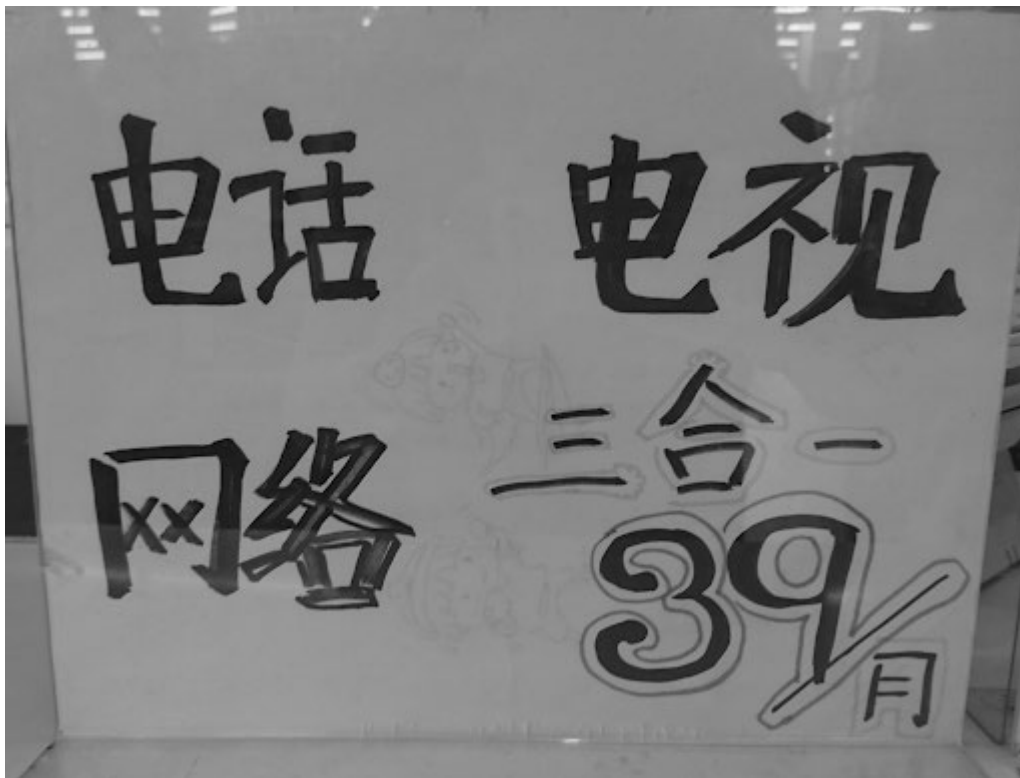 电话 电视
网络 三合一
39/月